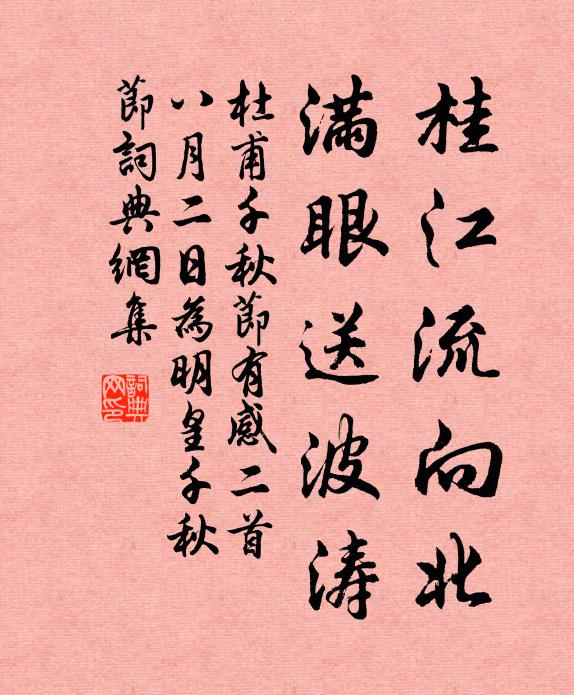 桂江流向北
满眼送波涛
杜甫千秋節有感二首
八月二日為明皇千秋
節詞典網集
詞典网印